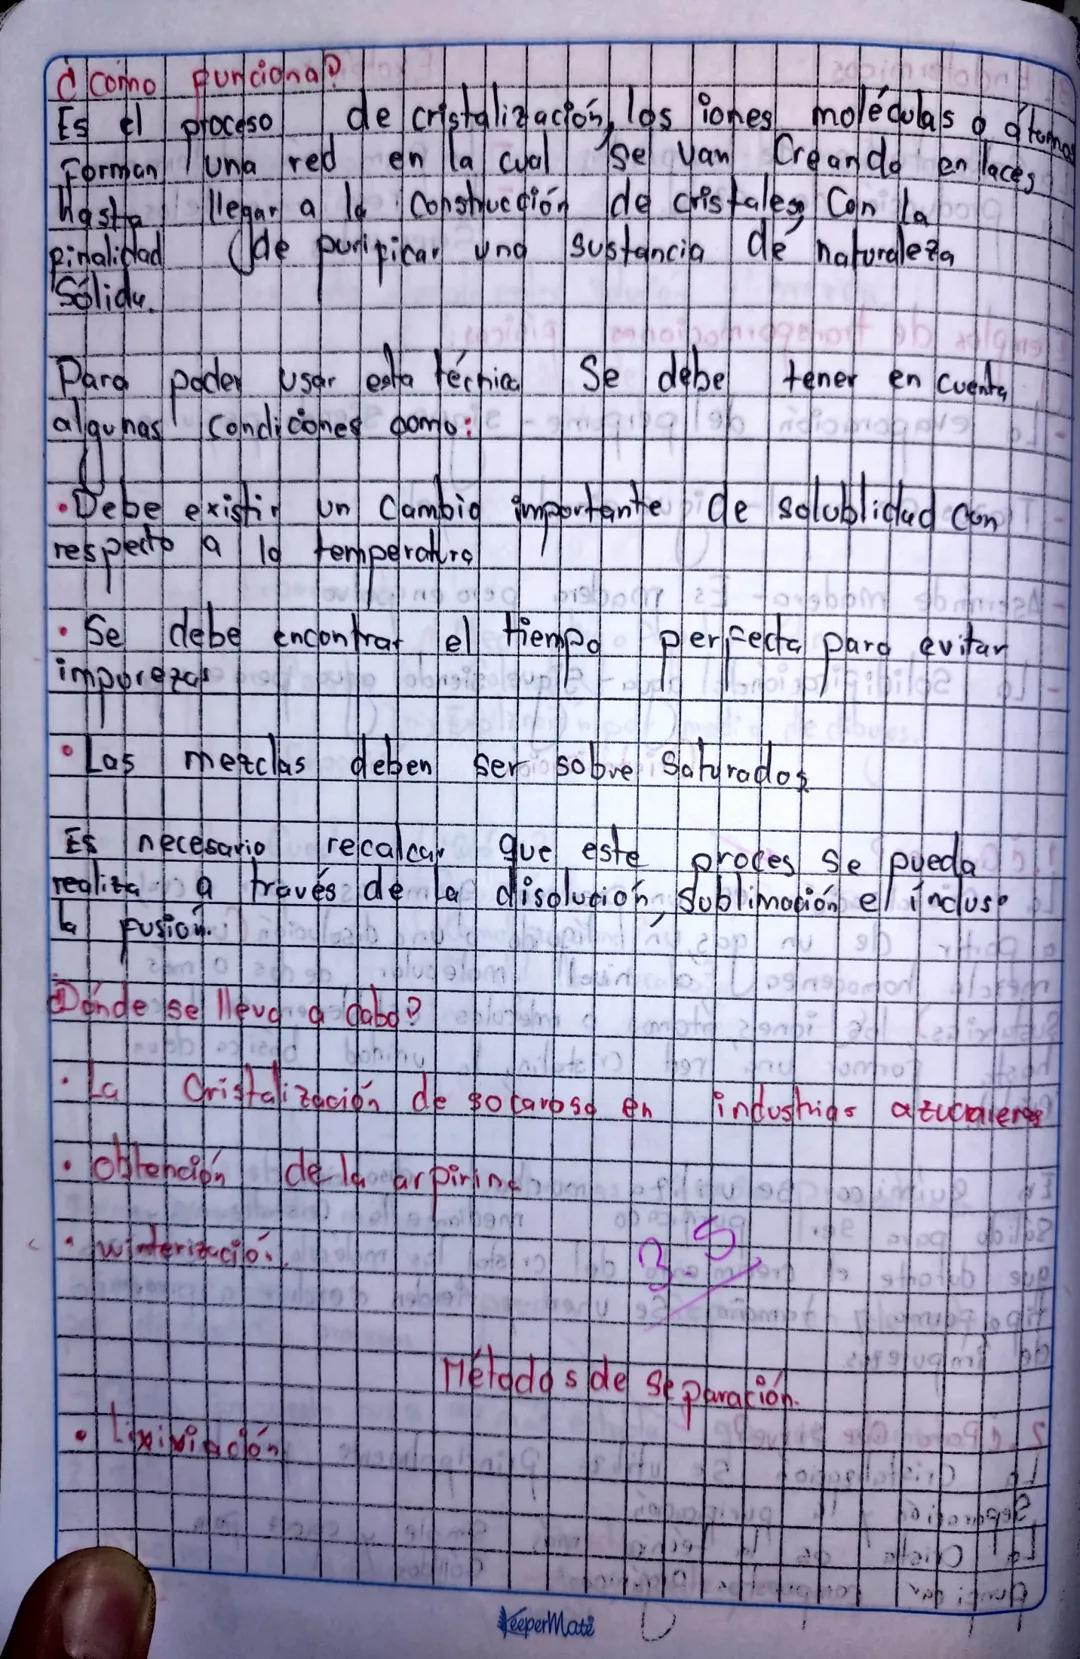 ¿Como funciona?
Es el proceso de cristalización, los iones molédulas o átomos
Forman una red en la cual se van Creando enlaces,
hasta llegar a la Construcción de cristales, Con la
finalidad de purificar una sustancia de naturaleza
Sólida.
Para poder usar esta técnica Se debe tener en cuenta
algunas condiciones como:
• Debe existir un Cambio importante de solublidad con
respecto a la temperatura
• Se debe encontrar el tiempo perfecta para evitar
impurezas
• Las mezclas deben ser sobre saturados
Es necesario recalcar que este proces se pueda
realiza a través de la disolución, Sublimación e incluso
la fusión.
¿Dónde se lleva a cabo?
• La Cristalización de socarosa en industrias azucareras
• obtención de la arpirina
• winterizació.
3 5
Métodos de separación.
• Lixiviación
KeeperMate